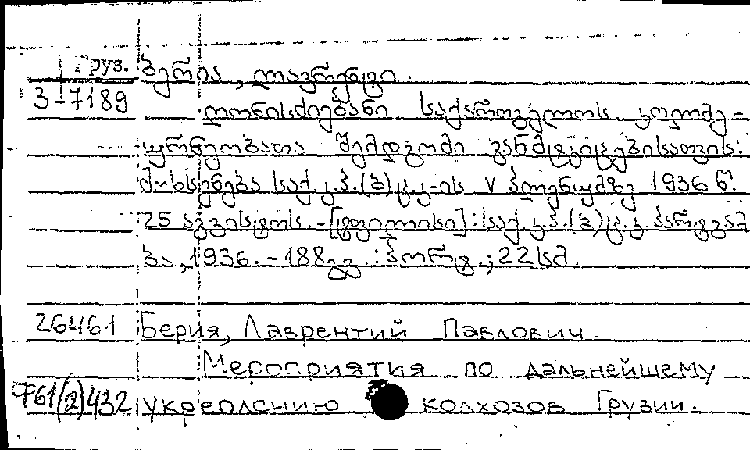 Груз. ბერია, ლავრენტი.
3-7189 ღონისძიებანი საქართველოს კოლმე-
ურნეობათა შემდგომი განმტკიცებისათვის:
მოხსენება საქ. კ.პ.(ბ) ც.კ-ის V პლენუმზე 1936 წ.
25 აგვისტოს. - [ტფილისი]: საქ. კ.პ.(ბ) ც.კ. პარტგამ-
ბა, 1936. - 188 გვ.: პორტ.; 22 სმ.
26461 Берия, Лаврентий Павлович.
Мероприятия по дальнейшему
761(2)432 укреплению колхозов Грузии.